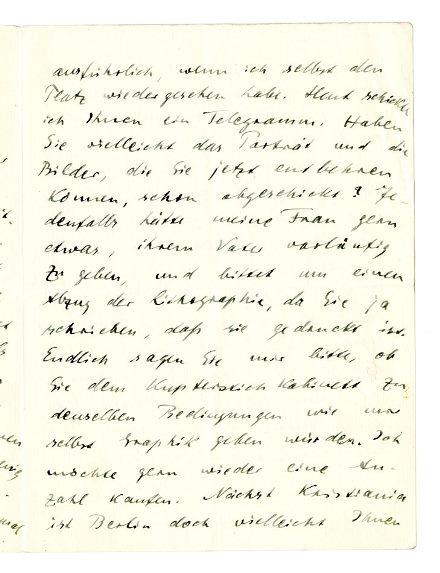 ausführlich, wenn ich selbst den
Platz wiedergesehen habe. Heut schickte
ich Ihnen ein Telegramm. Haben
Sie vielleicht das Porträt und die
Bilder, die Sie jetzt entbehren
können, schon abgeschickt? Je-
denfalls hätte meine Frau gern
etwas, ihrem Vater vorläufig
zu geben, und bittet um einen
Abzug der Lithographie, da Sie ja
schrieben, daß sie gedruckt ist.
Endlich sagen Sie mir bitte, ob
Sie dem Kupferstich Kabinett zu
denselben Bedingungen wie mir
selbst Graphik geben würden. Ich
möchte gern wieder eine An-
zahl kaufen. Nächst Kristiania
ist Berlin doch vielleicht Ihnen